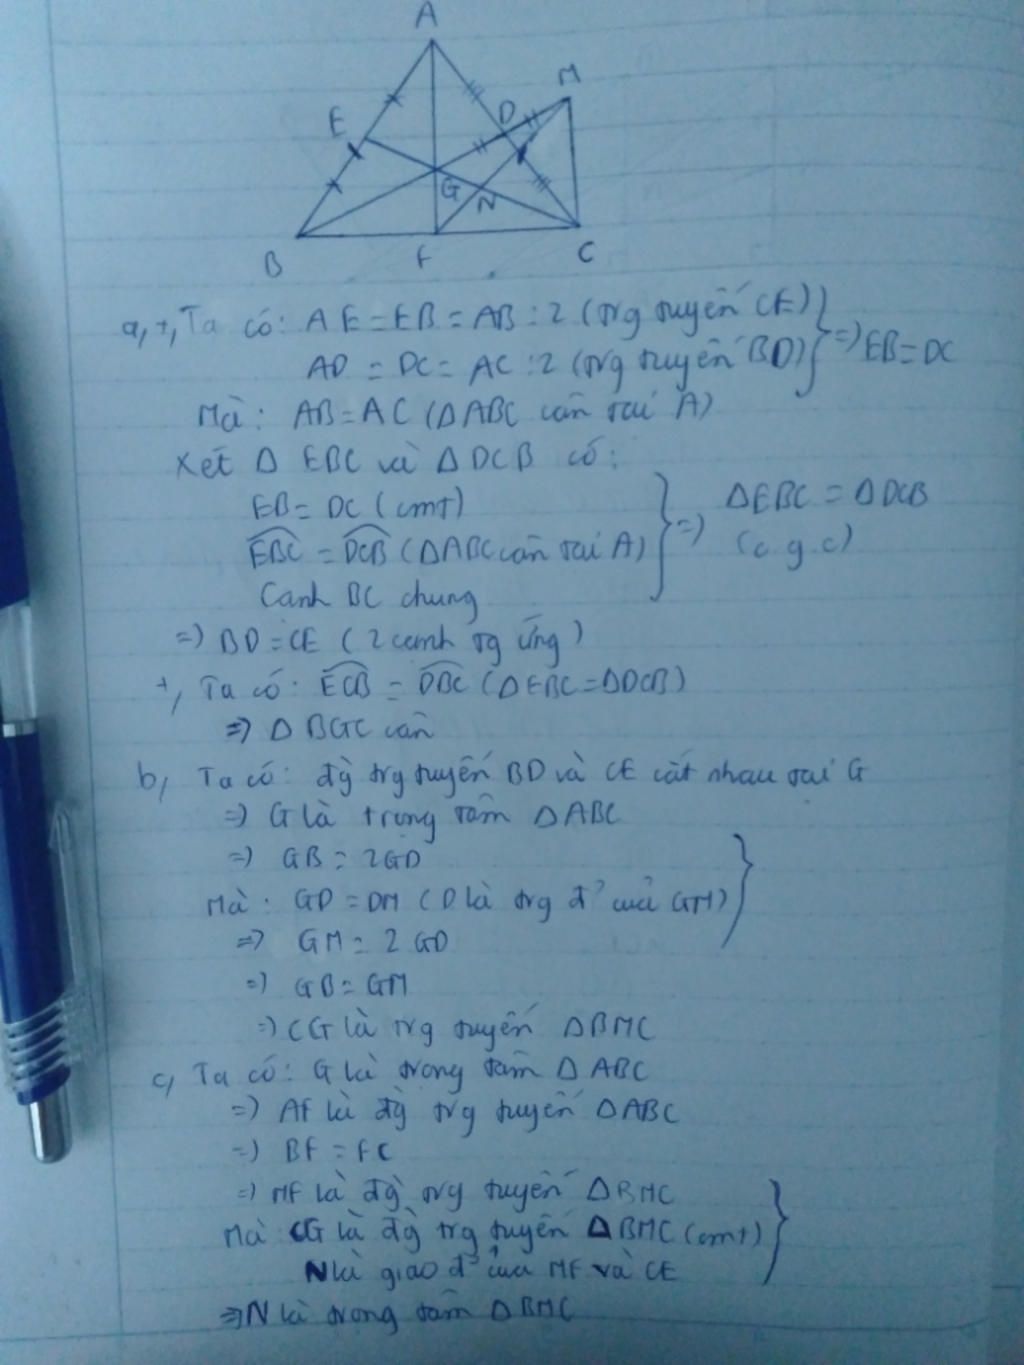 A
M
E
D
G
N
B
F
C
a, +, Ta có: AE = EB = AB : 2 (trg tuyến CE)
AD = DC = AC : 2 (trg tuyến BD) => EB = DC
Mà: AB = AC (Δ ABC cân tại A)
Xét Δ EBC và Δ DCB có:
EB = DC (cmt)
EBC = DCB (Δ ABC cân tại A) => ΔEBC = ΔDCB
Cạnh BC chung (c.g.c)
=> BD = CE (2 cạnh tg ứng)
+, Ta có: ECB = DBC (ΔEBC = ΔDCB)
=> Δ BGC cân
b, Ta có: đg trg tuyến BD và CE cắt nhau tại G
=> G là trọng tâm Δ ABC
=> GB = 2GD
Mà: GD = DM (D là trg đ' của GM)
=> GM = 2 GD
=> GB = GM
=> CG là trg tuyến ΔBMC
c, Ta có: G là trọng tâm Δ ABC
=> AF là đg trg tuyến ΔABC
=> BF = FC
=> MF là đg trg tuyến ΔBMC
Mà CG là đg trg tuyến ΔBMC (cmt)
N là giao đ' của MF và CE
=> N là trọng tâm ΔBMC